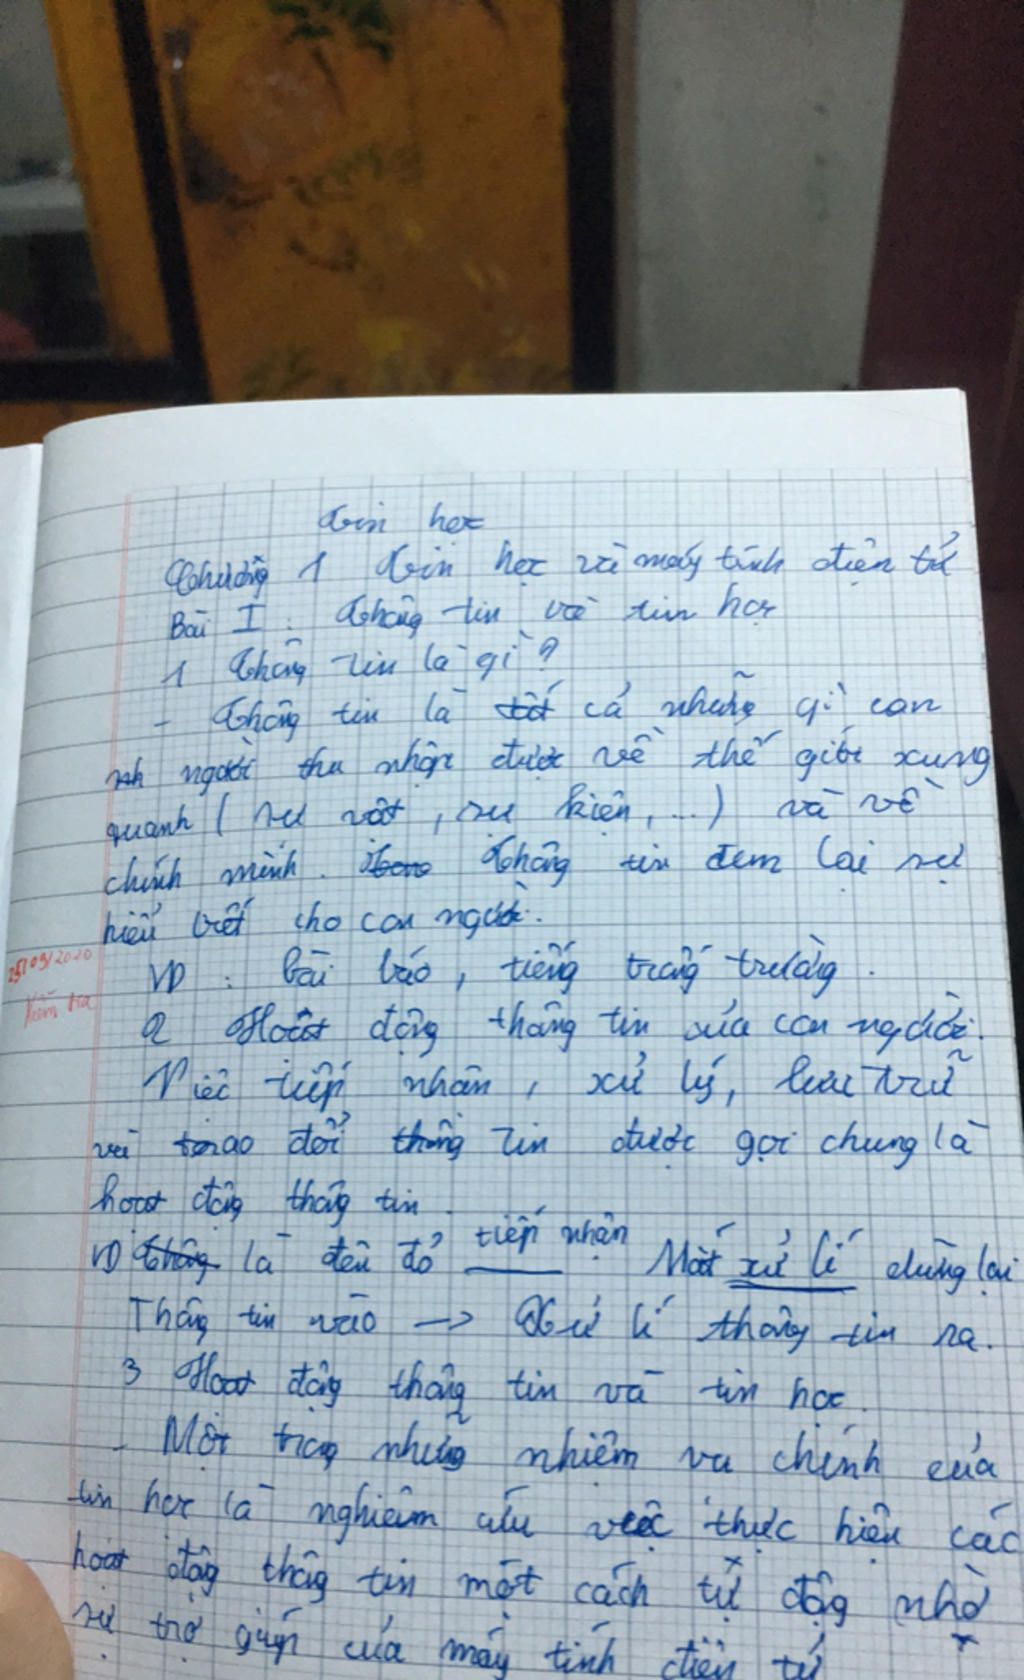 Tin học
Chương 1 Tin học và máy tính điện tử
Bài I : Thông tin và tin học
1 Thông tin là gì ?
- Thông tin là tất cả những gì con
người thu nhận được về thế giới xung
quanh ( sự vật , sự kiện , ... ) và về
chính mình . Thông tin đem lại sự
hiểu biết cho con người .
25/09/2020
VD : bài báo , tiếng trống trường .
Kiểm tra
2 Hoạt động thông tin của con người .
Việc tiếp nhân , xử lý , lưu trữ
và trao đổi thông tin được gọi chung là
hoạt động thông tin .
VD là đèn đỏ tiếp nhận Mắt xử lí dừng lại
Thông tin vào → Xử lí thông tin ra .
3 Hoạt động thông tin và tin học .
- Một trong những nhiệm vụ chính của
tin học là nghiêm cứu việc thực hiện các
hoạt động thông tin một cách tự động nhờ
sự trợ giúp của máy tính điện tử